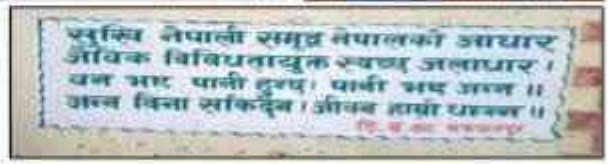 सुखि नेपाली समृद्ध नेपालको आधार
जैविक विविधतायुक्त स्वच्छ जलाधार ।
वन भए पानी हुन्छ। पानी भए अन्न ॥
अन्न विना सकिदैन । जीवन हाम्रो धान्न ॥